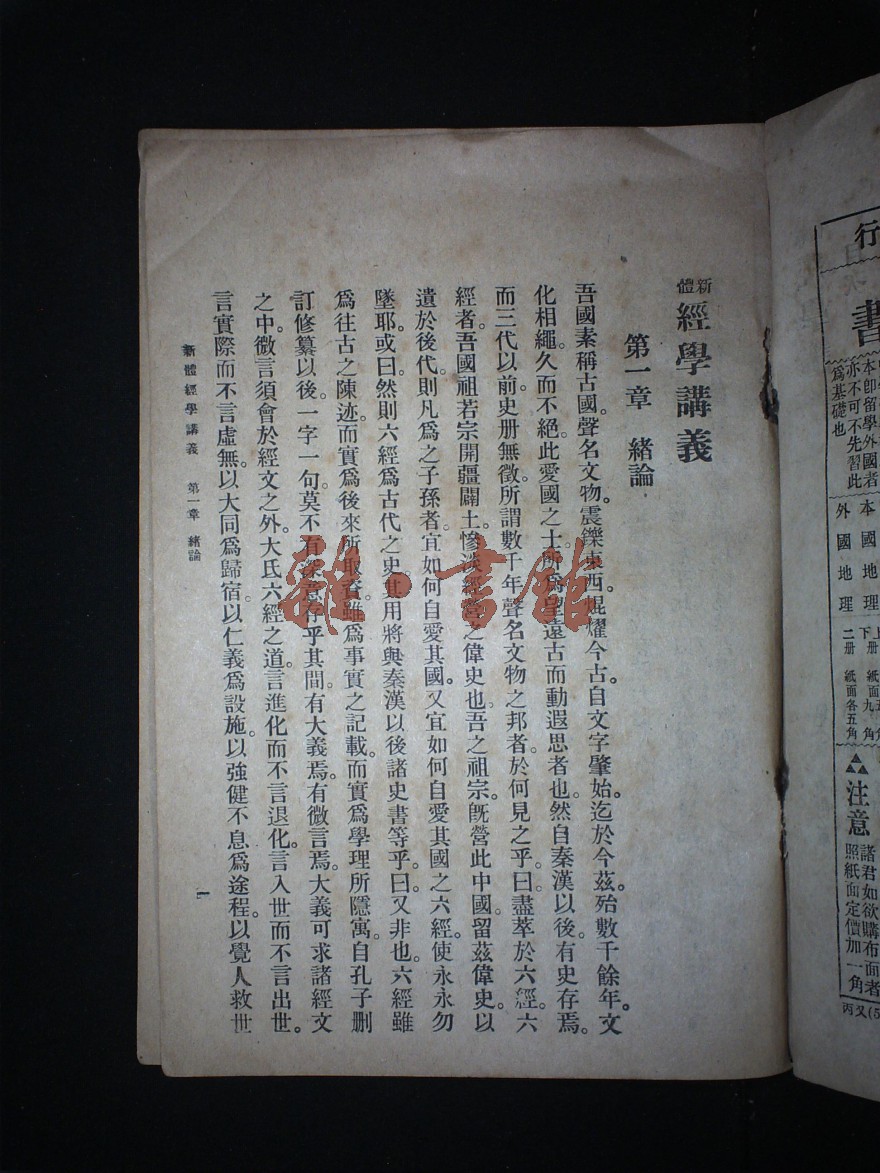 新體
經學講義
第一章　緒論
吾國素稱古國。聲名文物。震鑠東西。焜耀今古。自文字肇始。迄於今茲。殆數千餘年。文
化相繩。久而不絕。此愛國之士。所爲望遠古而動遐思者也。然自秦漢以後。有史存焉。
而三代以前。史册無徵。所謂數千年聲名文物之邦者。於何見之乎。曰。盡萃於六經。六
經者。吾國祖若宗開疆闢土。慘淡經營之偉史也。吾之祖宗。旣營此中國。留茲偉史。以
遺於後代。則凡爲之子孫者。宜如何自愛其國。又宜如何自愛其國之六經。使永永勿
墜耶。或曰。然則六經爲古代之史。其用將與秦漢以後諸史書等乎。曰。又非也。六經雖
爲往古之陳迹。而實爲後來所取資。雖爲事實之記載。而實爲學理所隱寓。自孔子刪
訂修纂以後。一字一句。莫不有深意存乎其間。有大義焉。有微言焉。大義可求諸經文
之中。微言須會於經文之外。大氐六經之道。言進化而不言退化。言入世而不言出世。
言實際而不言虛無。以大同爲歸宿。以仁義爲設施。以強健不息爲途程。以覺人救世
新體經學講義　第一章　緒論
一
雜·書館
行
書
本卽留學外國者
亦不可不先習此
爲基礎也
本國地理
外國地理
二册　紙面各五角
注意
諸君如欲購布面者
照紙面定價加一角
丙又(5